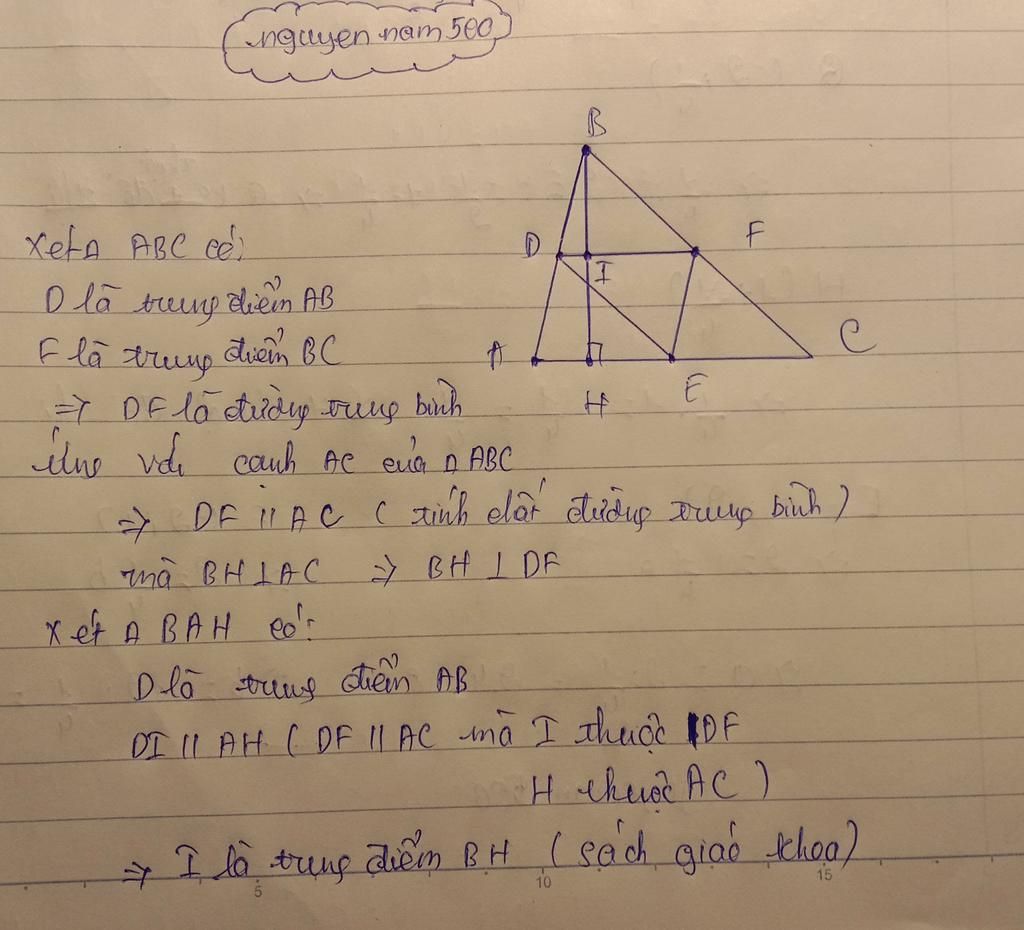 nguyen nam 500
B
D
F
I
A
C
H
E
Xét Δ ABC có:
D là trung điểm AB
F là trung điểm BC
=> DF là đường trung bình
ứng với cạnh AC của Δ ABC
=> DF // AC ( tính chất đường trung bình )
mà BH ⊥ AC => BH ⊥ DF
Xét Δ BAH có:
D là trung điểm AB
DI // AH ( DF // AC mà I thuộc DF
H thuộc AC )
=> I là trung điểm BH ( sách giáo khoa )
5 10 15